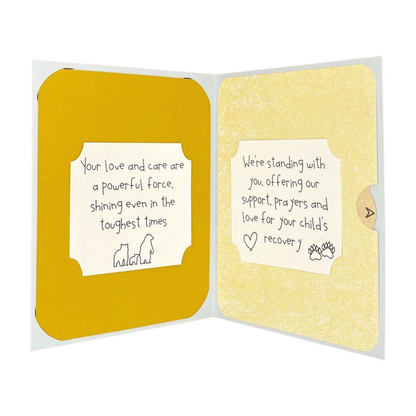 Your love and care are
a powerful force,
shining even in the
toughest times
We're standing with
you, offering our
support, prayers and
love for your child's
recovery